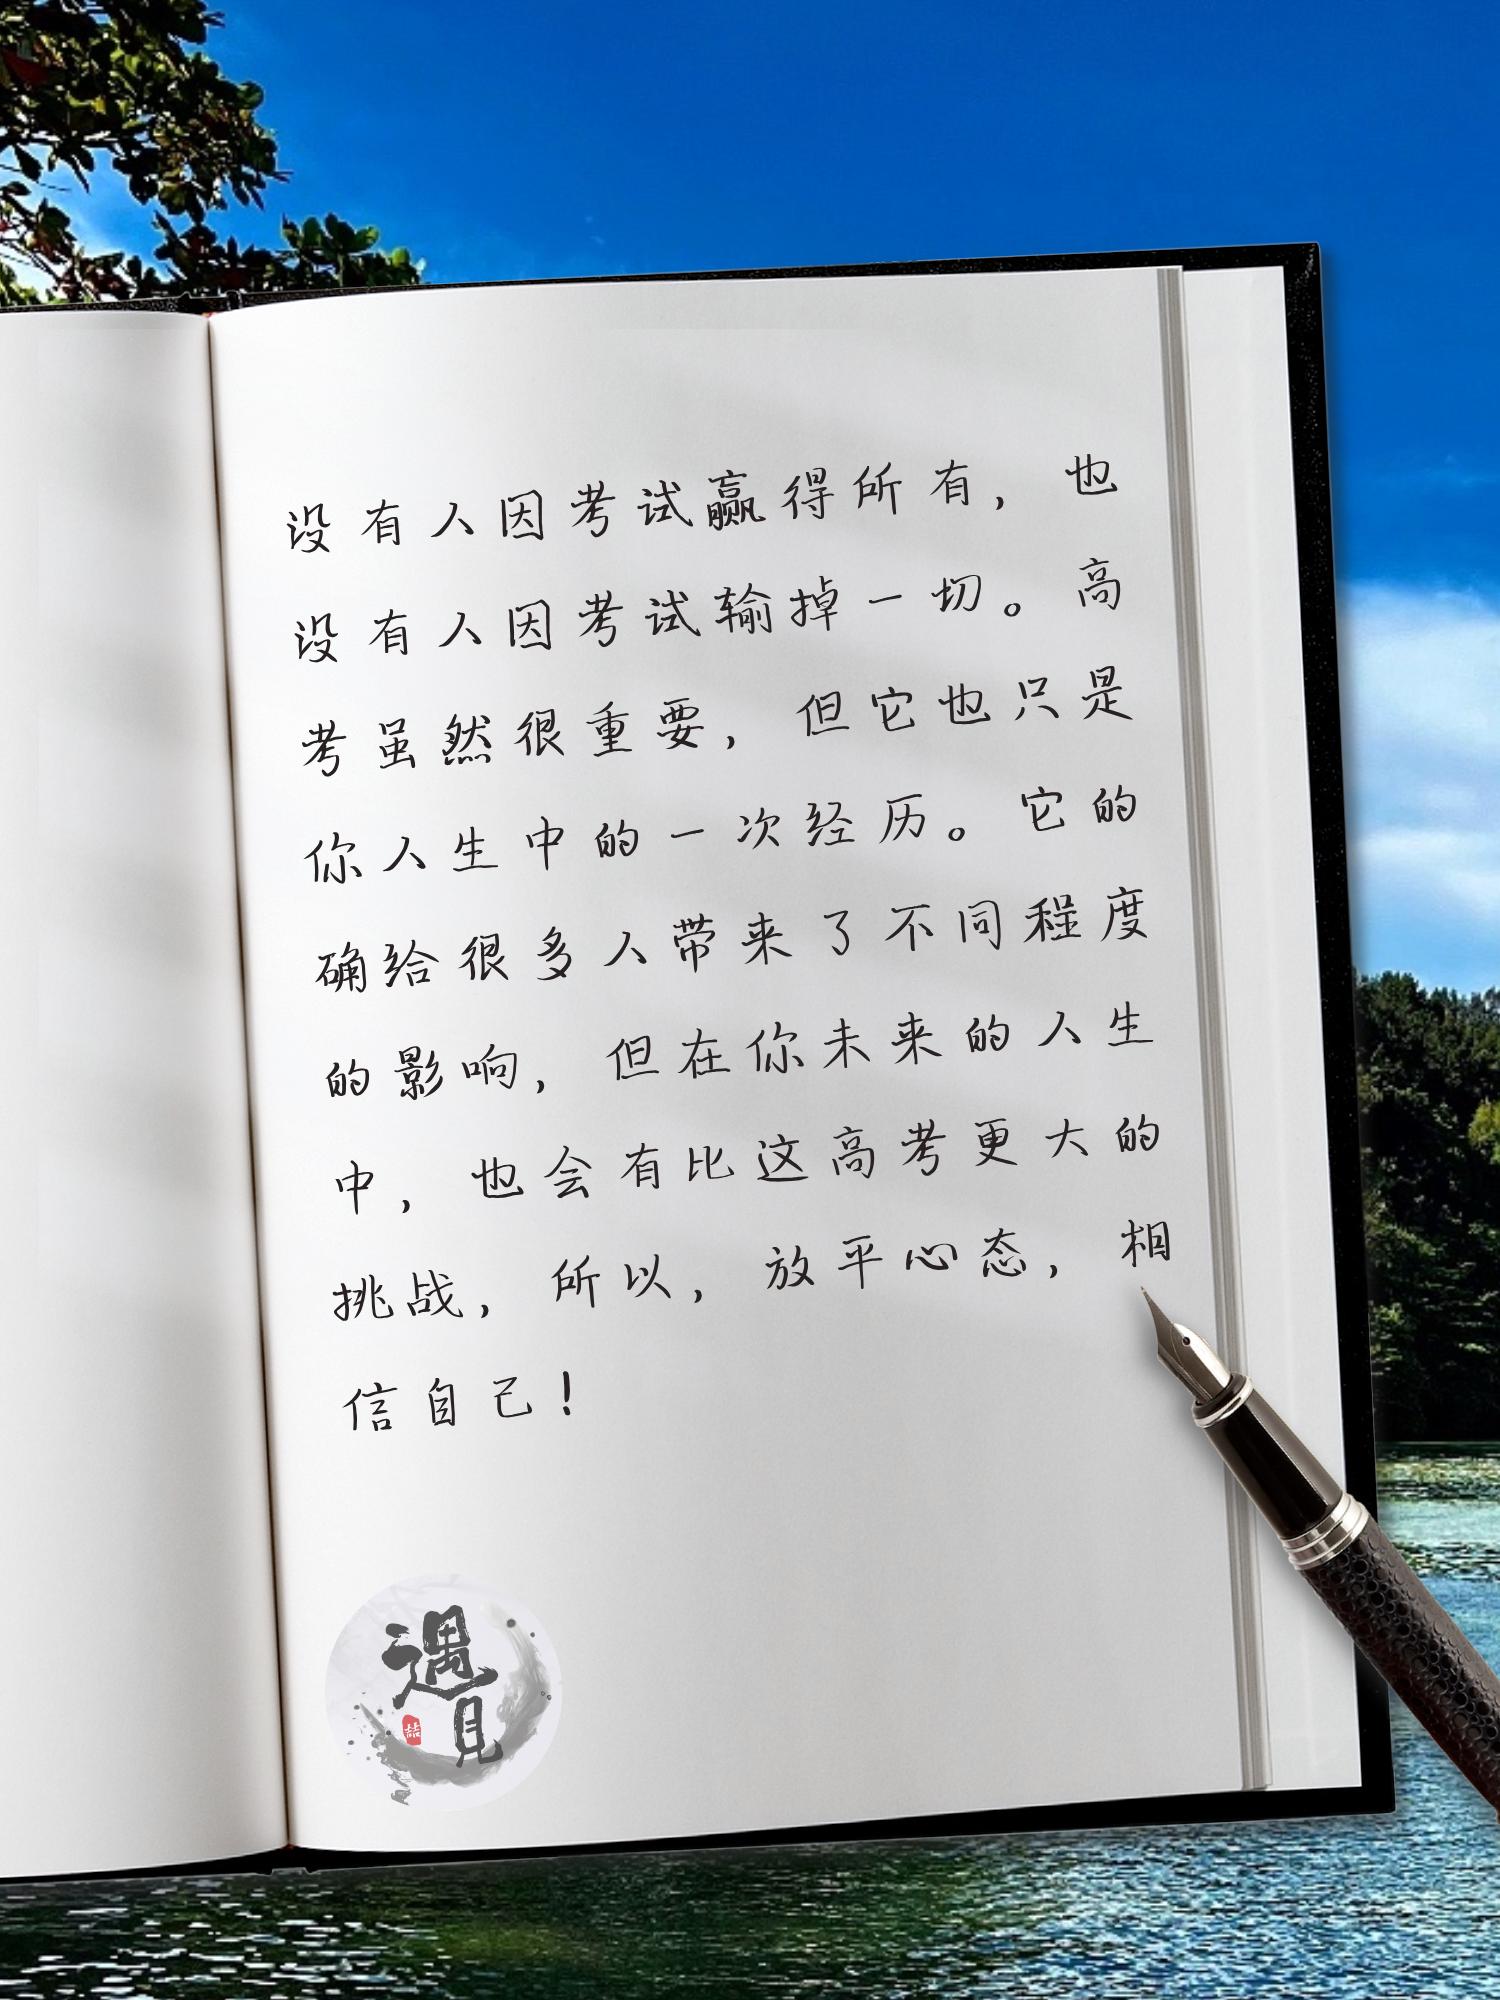 没有人因考试赢得所有，也
没有人因考试输掉一切。高
考虽然很重要，但它也只是
你人生中的一次经历。它的
确给很多人带来了不同程度
的影响，但在你未来的人生
中，也会有比这高考更大的
挑战，所以，放平心态，相
信自己！
遇
見
喆